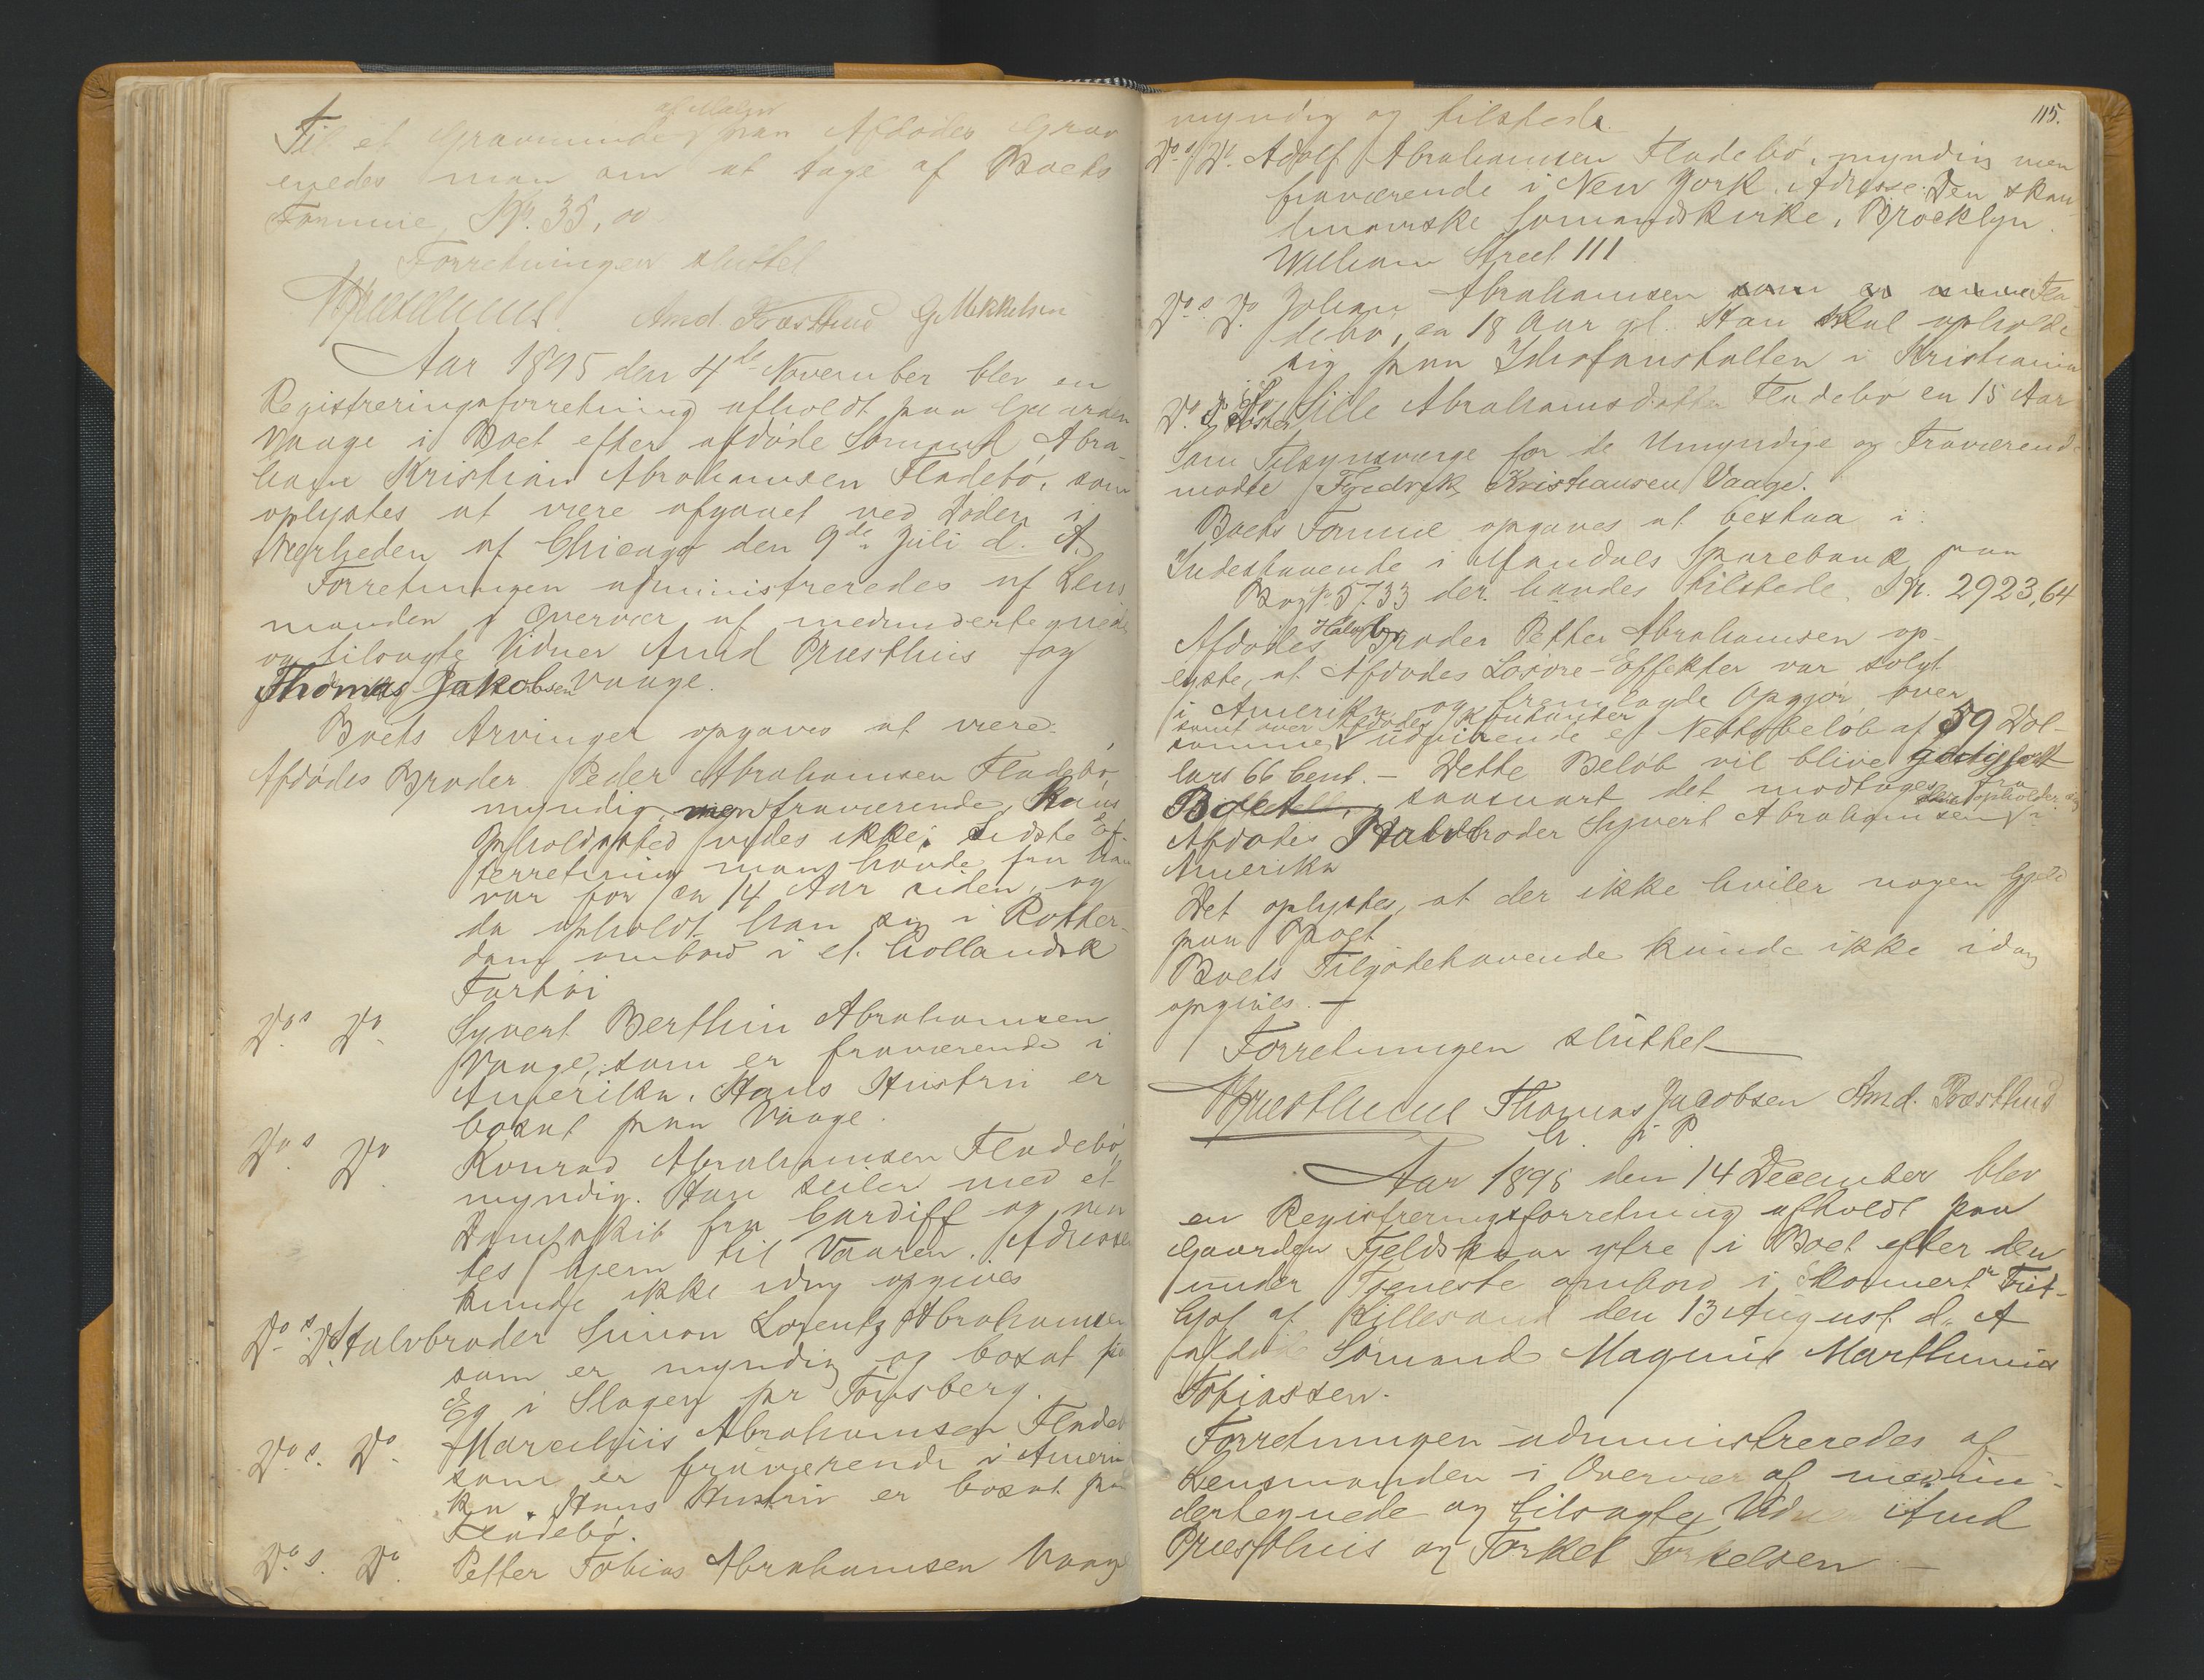 af Malm
Til et Gravminde paa Afdødes Grav
enedes man om at tage af Boets
Formue, Kr. 35,00
Forretningen sluttet
Amd. Præsthus G. Mikkelsen
Aar 1895 den 4de November blev en
Registreringsforretning afholdt paa Gaarden
Vaage i Boet efter afdøde Sømand Abra-
ham Kristian Abrahamsen Fladebø, som
oplystes at være afgaaet ved Døden i
Nærheden af Chicago den 9de Juli d. A.
Forretningen administreredes af Lens-
manden i Overvær af medundertegnede
og tilsagte Vidner Amd Præsthus og
Thomas Jakobsen Vaage.
Boets Arvinger opgaves at være:
Afdødes Broder Peder Abrahamsen Fladebø,
myndig, men fraværende, Hans
Opholdssted vides ikke. Sidste Ef-
terretning man havde fra ham
var for ca 14 Aar siden, og
da opholdt han sig i Rotter-
dam ombord i et hollandsk
Fartøi
Do s Do Syvert Berthin Abrahamsen
Vaage, som er fraværende i
Amerika. Hans Hustru er
bosat paa Vaage.
Do s Do Konrad Abrahamsen Fladebø,
myndig. Han seiler med et
Dampskib fra Cardiff og ven-
tes hjem til Vaaren. Adresse
kunde ikke idag opgives
Do s Do Halvbroder Simon Lorents Abrahamsen
som er myndig og bosat paa
Eg i Slagen pr Tønsberg.
Do s. Do Marcelius Abrahamsen Fladebø
som er fraværende i Ameri-
ka. Hans Hustru er bosat paa
Fladebø.
Do s. Do Petter Tobias Abrahamsen Vaage
115.
myndig og tilstede
Do s Do Adolf Abrahamsen Fladebø, myndig men
fraværende i New York. Adresse: Den skan-
dinaviske Sømandskirke, Brocklyn
William Street 111
Do s Do Johan Abrahamsen som er Fla-
debø, ca 18 Aar gl. Han skal opholde
sig paa Idiotanstalten i Kristiania
Do s Do Søster Sille Abrahamsdatter Fladebø ca 15 Aar
Som Tilsynsværge for de Umyndige og Fraværende
mødte Fredrik Kristiansen Vaage.
Boets Formue opgaves at bestaa i:
Indestaaende i Mandals Sparebank paa
Bog No 5733 der havdes tilstede, Kr. 2923,64
Afdødes Halvbroder Petter Abrahamsen op-
lyste, at Afdødes Løsøre-Effekter var solgt
i Amerika og fremlagde Opgjør over
samt over Afdødes Kontanter
samme udvisende et Nettobeløb af 59 Dol-
lars 66 Cent. – Dette Beløb vil blive godtgjort
Boet, saasnart det modtages fra
som opholder sig
Afdødes Halvbroder Syvert Abrahamsen i
Amerika
Det oplystes, at der ikke hviler nogen Gjeld
paa Boet
Boets Tilgodehavende kunde ikke idag
opgives. –
Forretningen sluttet
Thomas Jacobsen Amd. Præsthus
m. p. P.
Aar 1895 den 14 December blev
en Registreringsforretning afholdt paa
Gaarden Fjeldskaar ytre i Boet efter den
under Tjeneste ombord i Skonnert "Frit-
hjof af Lillesand den 13 August d. A
afdøde Sømand Magnus Marthinius
Tobiassen.
Forretningen administreredes af
Lensmanden i Overvær af medun-
dertegnede og tilsagte Vidner Amd
Præsthus og Torkel Torkelsen –